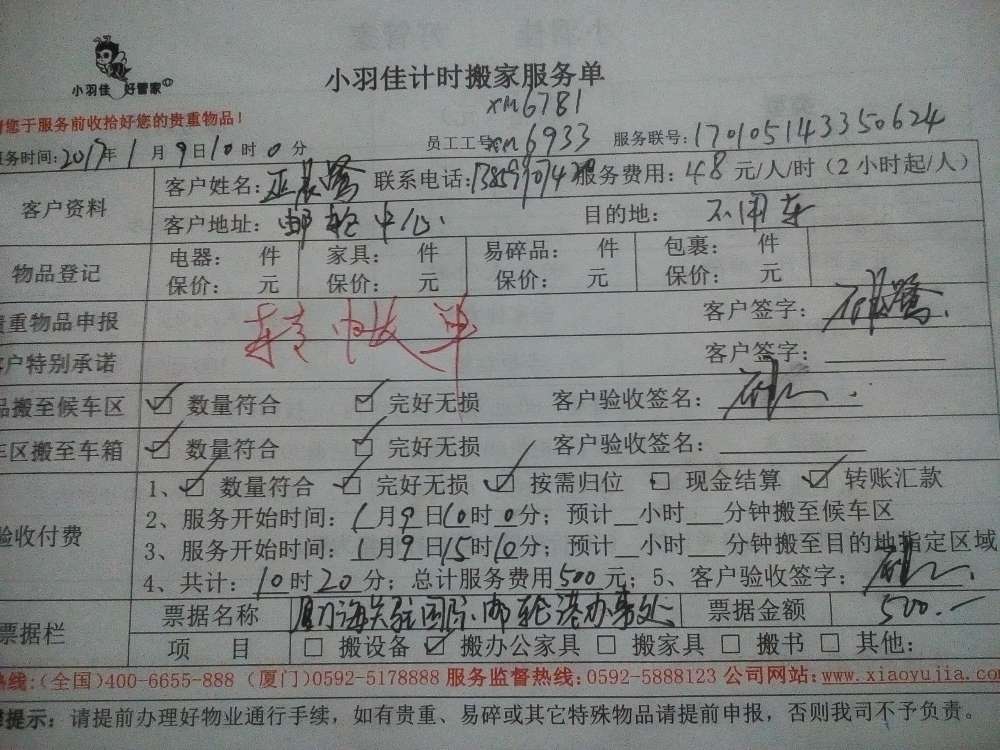 小羽佳 好管家
小羽佳计时搬家服务单
您于服务前收拾好您的贵重物品!
XM6781
员工工号: XM6933 服务联号: 170105143350624
务时间: 2017年1月9日10时0分
客户资料 客户姓名: 联系电话: 服务费用: 48元/人/时(2小时起/人)
客户地址: 邮轮中心 目的地: 不用车
物品登记 电器: 件 家具: 件 易碎品: 件 包裹: 件
保价: 元 保价: 元 保价: 元 保价: 元
贵重物品申报 客户签字:
转 收单
户特别承诺 客户签字:
品搬至候车区 数量符合 完好无损 客户验收签名:
车区搬至车箱 数量符合 完好无损 客户验收签名:
验收付费 1、 数量符合 完好无损 按需归位 现金结算 转账汇款
2、服务开始时间: 1月9日10时0分; 预计 小时 分钟搬至候车区
3、服务开始时间: 1月9日15时10分; 预计 小时 分钟搬至目的地指定区域
4、共计: 10时20分; 总计服务费用500元; 5、客户验收签字:
票据栏 票据名称 厦门海关驻国际邮轮港办事处 票据金额 500.-
项 目 搬设备 搬办公家具 搬家具 搬书 其他:
热线:(全国)400-6655-888 (厦门)0592-5178888 服务监督热线:0592-5888123 公司网站:www.xiaoyujia.com
提示: 请提前办理好物业通行手续，如有贵重、易碎或其它特殊物品请提前申报，否则我司不予负责。